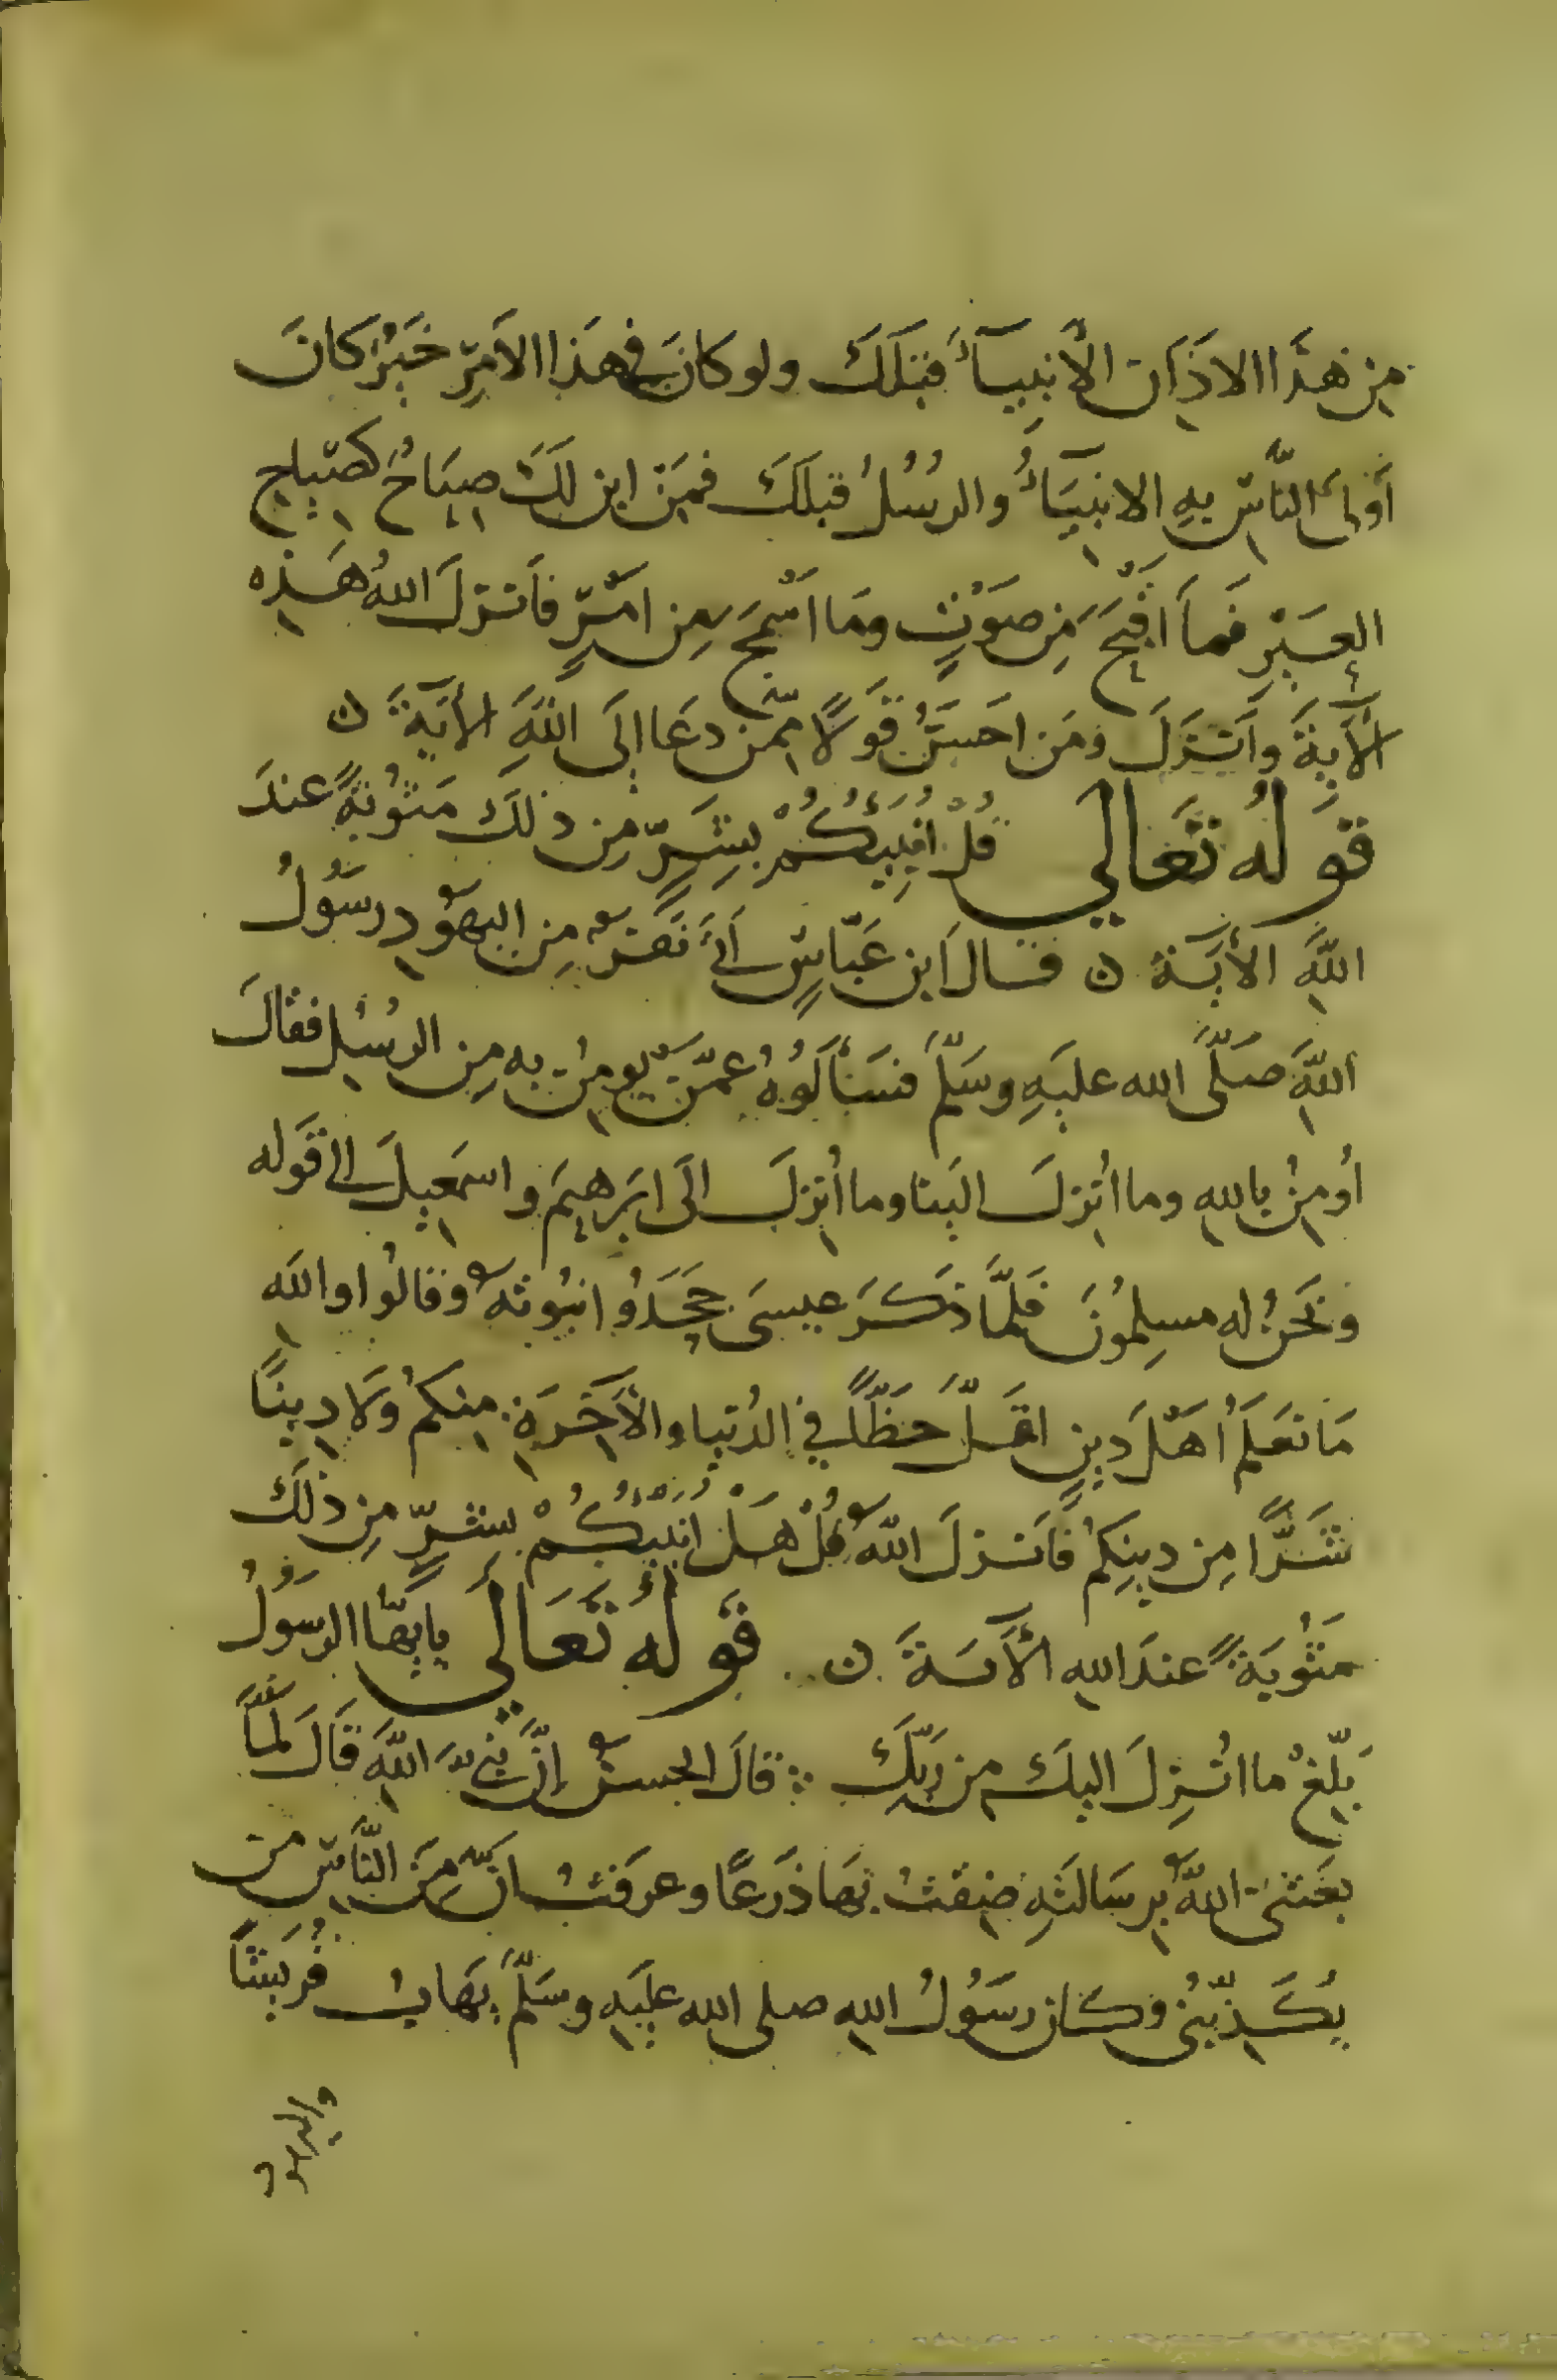 من هذا الاذان الأنبياء قبلك ولو كان في هذا الأمر خير كان
أولى الناس به الانبياء والرسل قبلك فمن اين لك صياح كصياح
العير فما اقبح من صوت وما اسمج من امر فأنزل الله هذه
الآية وانزل ومن احسن قولا ممن دعا إلى الله الآية ن
قوله تعالى قل انبيكم بشر من ذلك مثوبة عند
الله الآية ن قال ابن عباس اتى نفر من اليهود رسول
الله صلى الله عليه وسلم فسألوه عمن يومن به من الرسل فقال
أومن بالله وما انزل الينا وما أنزل الى ابرهيم واسمعيل الى قوله
ونحن له مسلمون فلما ذكر عيسى جحدوا نبوته وقالوا والله
ما نعلم أهل دين اقل حظا في الدنيا والآخرة منكم ولا دينا
شرا من دينكم فأنزل الله قل هل انبيكم بشر من ذلك
مثوبة عند الله الآية ن قوله تعالى يايها الرسول
بلغ ما انزل اليك من ربك ∴ قال الحسن إن نبي الله قال لما
بعثنى الله برسالته ضقت بها ذرعا وعرفت ان من الناس من
يكذبني وكان رسول الله صلى الله عليه وسلم يهاب قريشا
واليهود